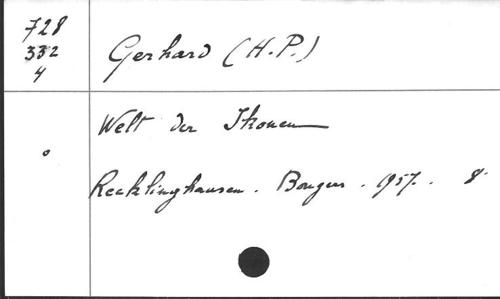 728
332
4
Gerhard (H.P.)
Welt der Ikonen
Recklinghausen. Bongers. 1957. 8°